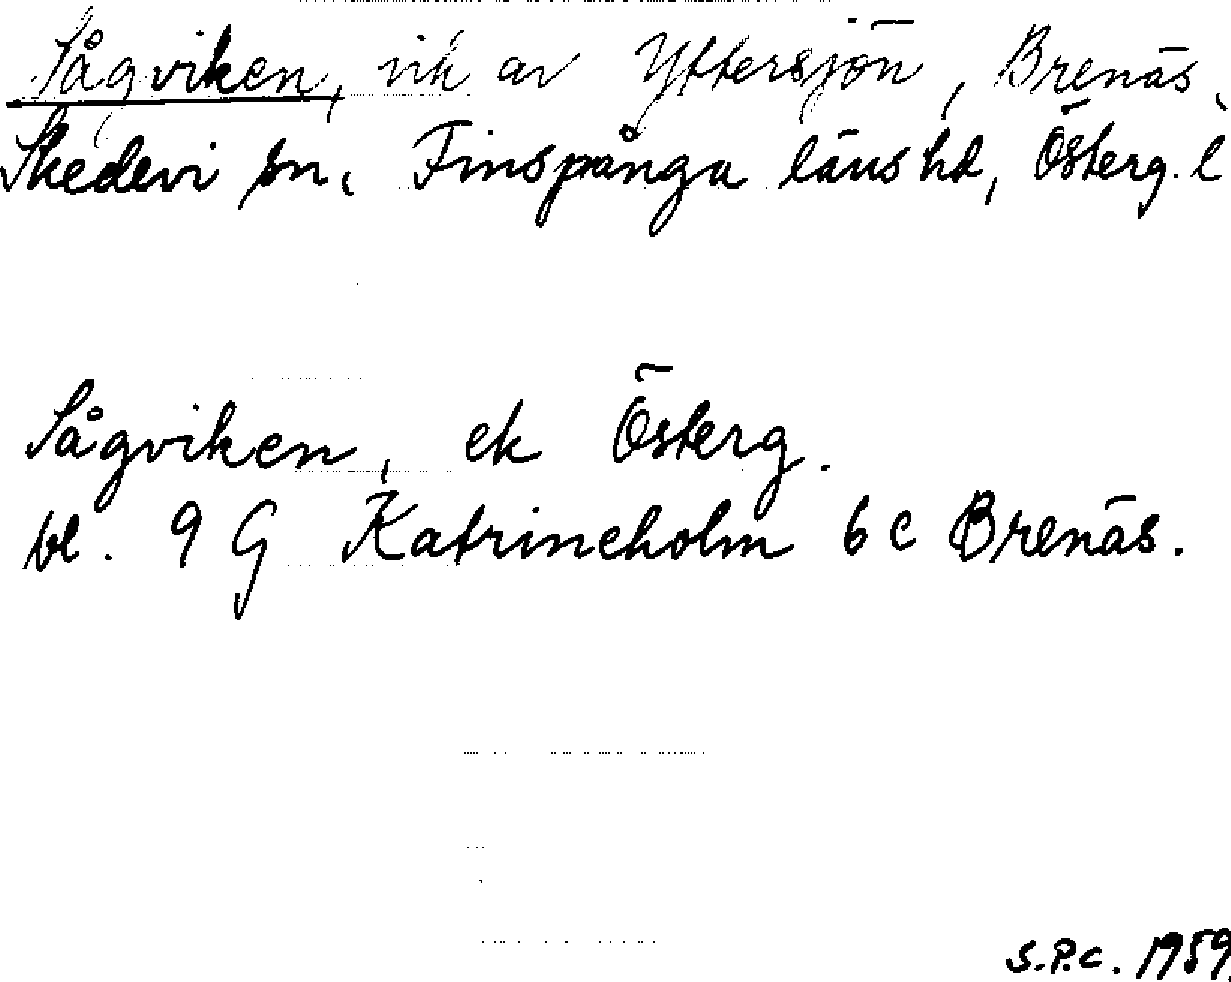 Sågviken, vik av Yttersjön, Brenäs,
Skedevi sn, Finspånga läns hd, Österg. l
Sågviken, ek Österg.
bl. 9 G Katrineholm 6 c Brenäs.
S.P.C. 1959.